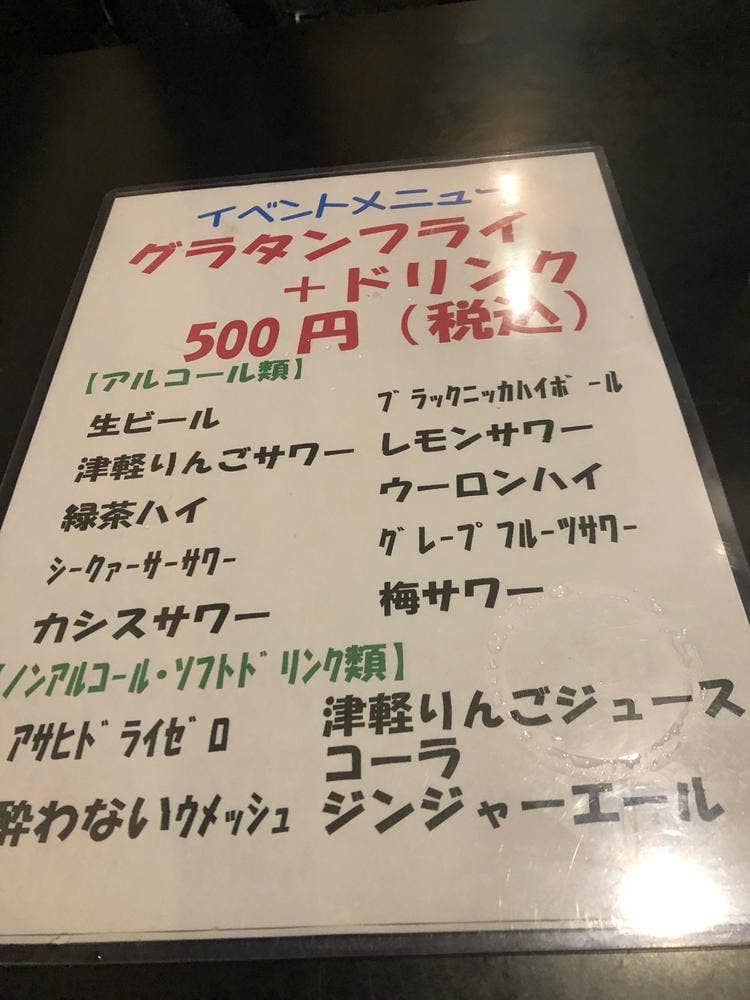 イベントメニュー
グラタンフライ
＋ドリンク
500円（税込）
【アルコール類】
生ビール
ﾌﾞﾗｯｸﾆｯｶﾊｲﾎﾞｰﾙ
津軽りんごサワー
レモンサワー
緑茶ハイ
ウーロンハイ
ｼｰｸァｰサｰｻﾜｰ
ｸﾞﾚｰﾌﾟﾌﾙｰﾂｻﾜｰ
カシスサワー
梅サワー
【ﾉﾝｱﾙｺｰﾙ・ｿﾌﾄﾄﾞﾘﾝｸ類】
ｱｻﾋﾄﾞﾗｲｾﾞﾛ
津軽りんごジュース
コーラ
酔わないｳﾒｯｼｭ
ジンジャーエール